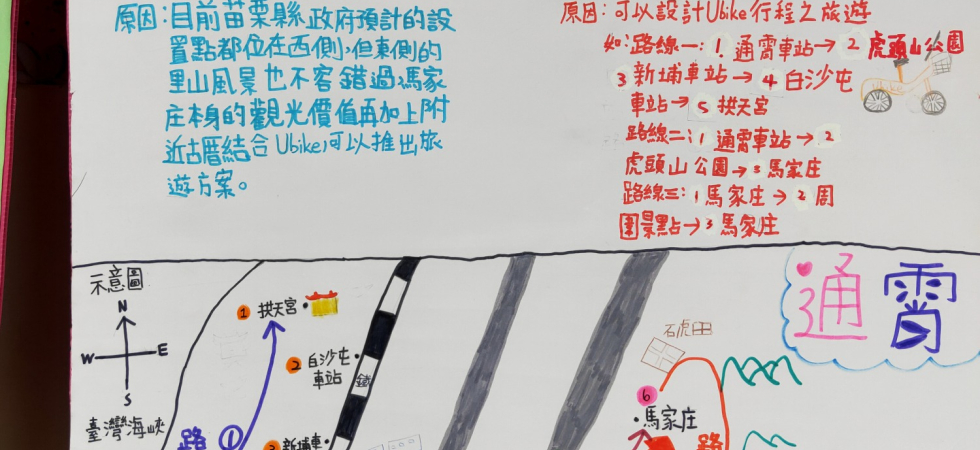 原因:目前苗栗縣政府預計的設
置點都位在西側,但東側的
里山風景也不容錯過,馬家
庄本身的觀光價值再加上附
近古厝結合Ubike,可以推出旅
遊方案。
原因:可以設計Ubike行程之旅遊
如:路線一:1 通霄車站→2 虎頭山公園
3 新埔車站→4 白沙屯
車站→5 拱天宮
路線二:1 通霄車站→2
虎頭山公園→3 馬家庄
路線三:1 馬家庄→2 周
圍景點→3 馬家庄
示意圖
N
W E
S
臺灣海峽
1 拱天宮
2 白沙屯
車站
鐵
路 1
3 新埔車
通霄
石虎田
6
馬家庄
路